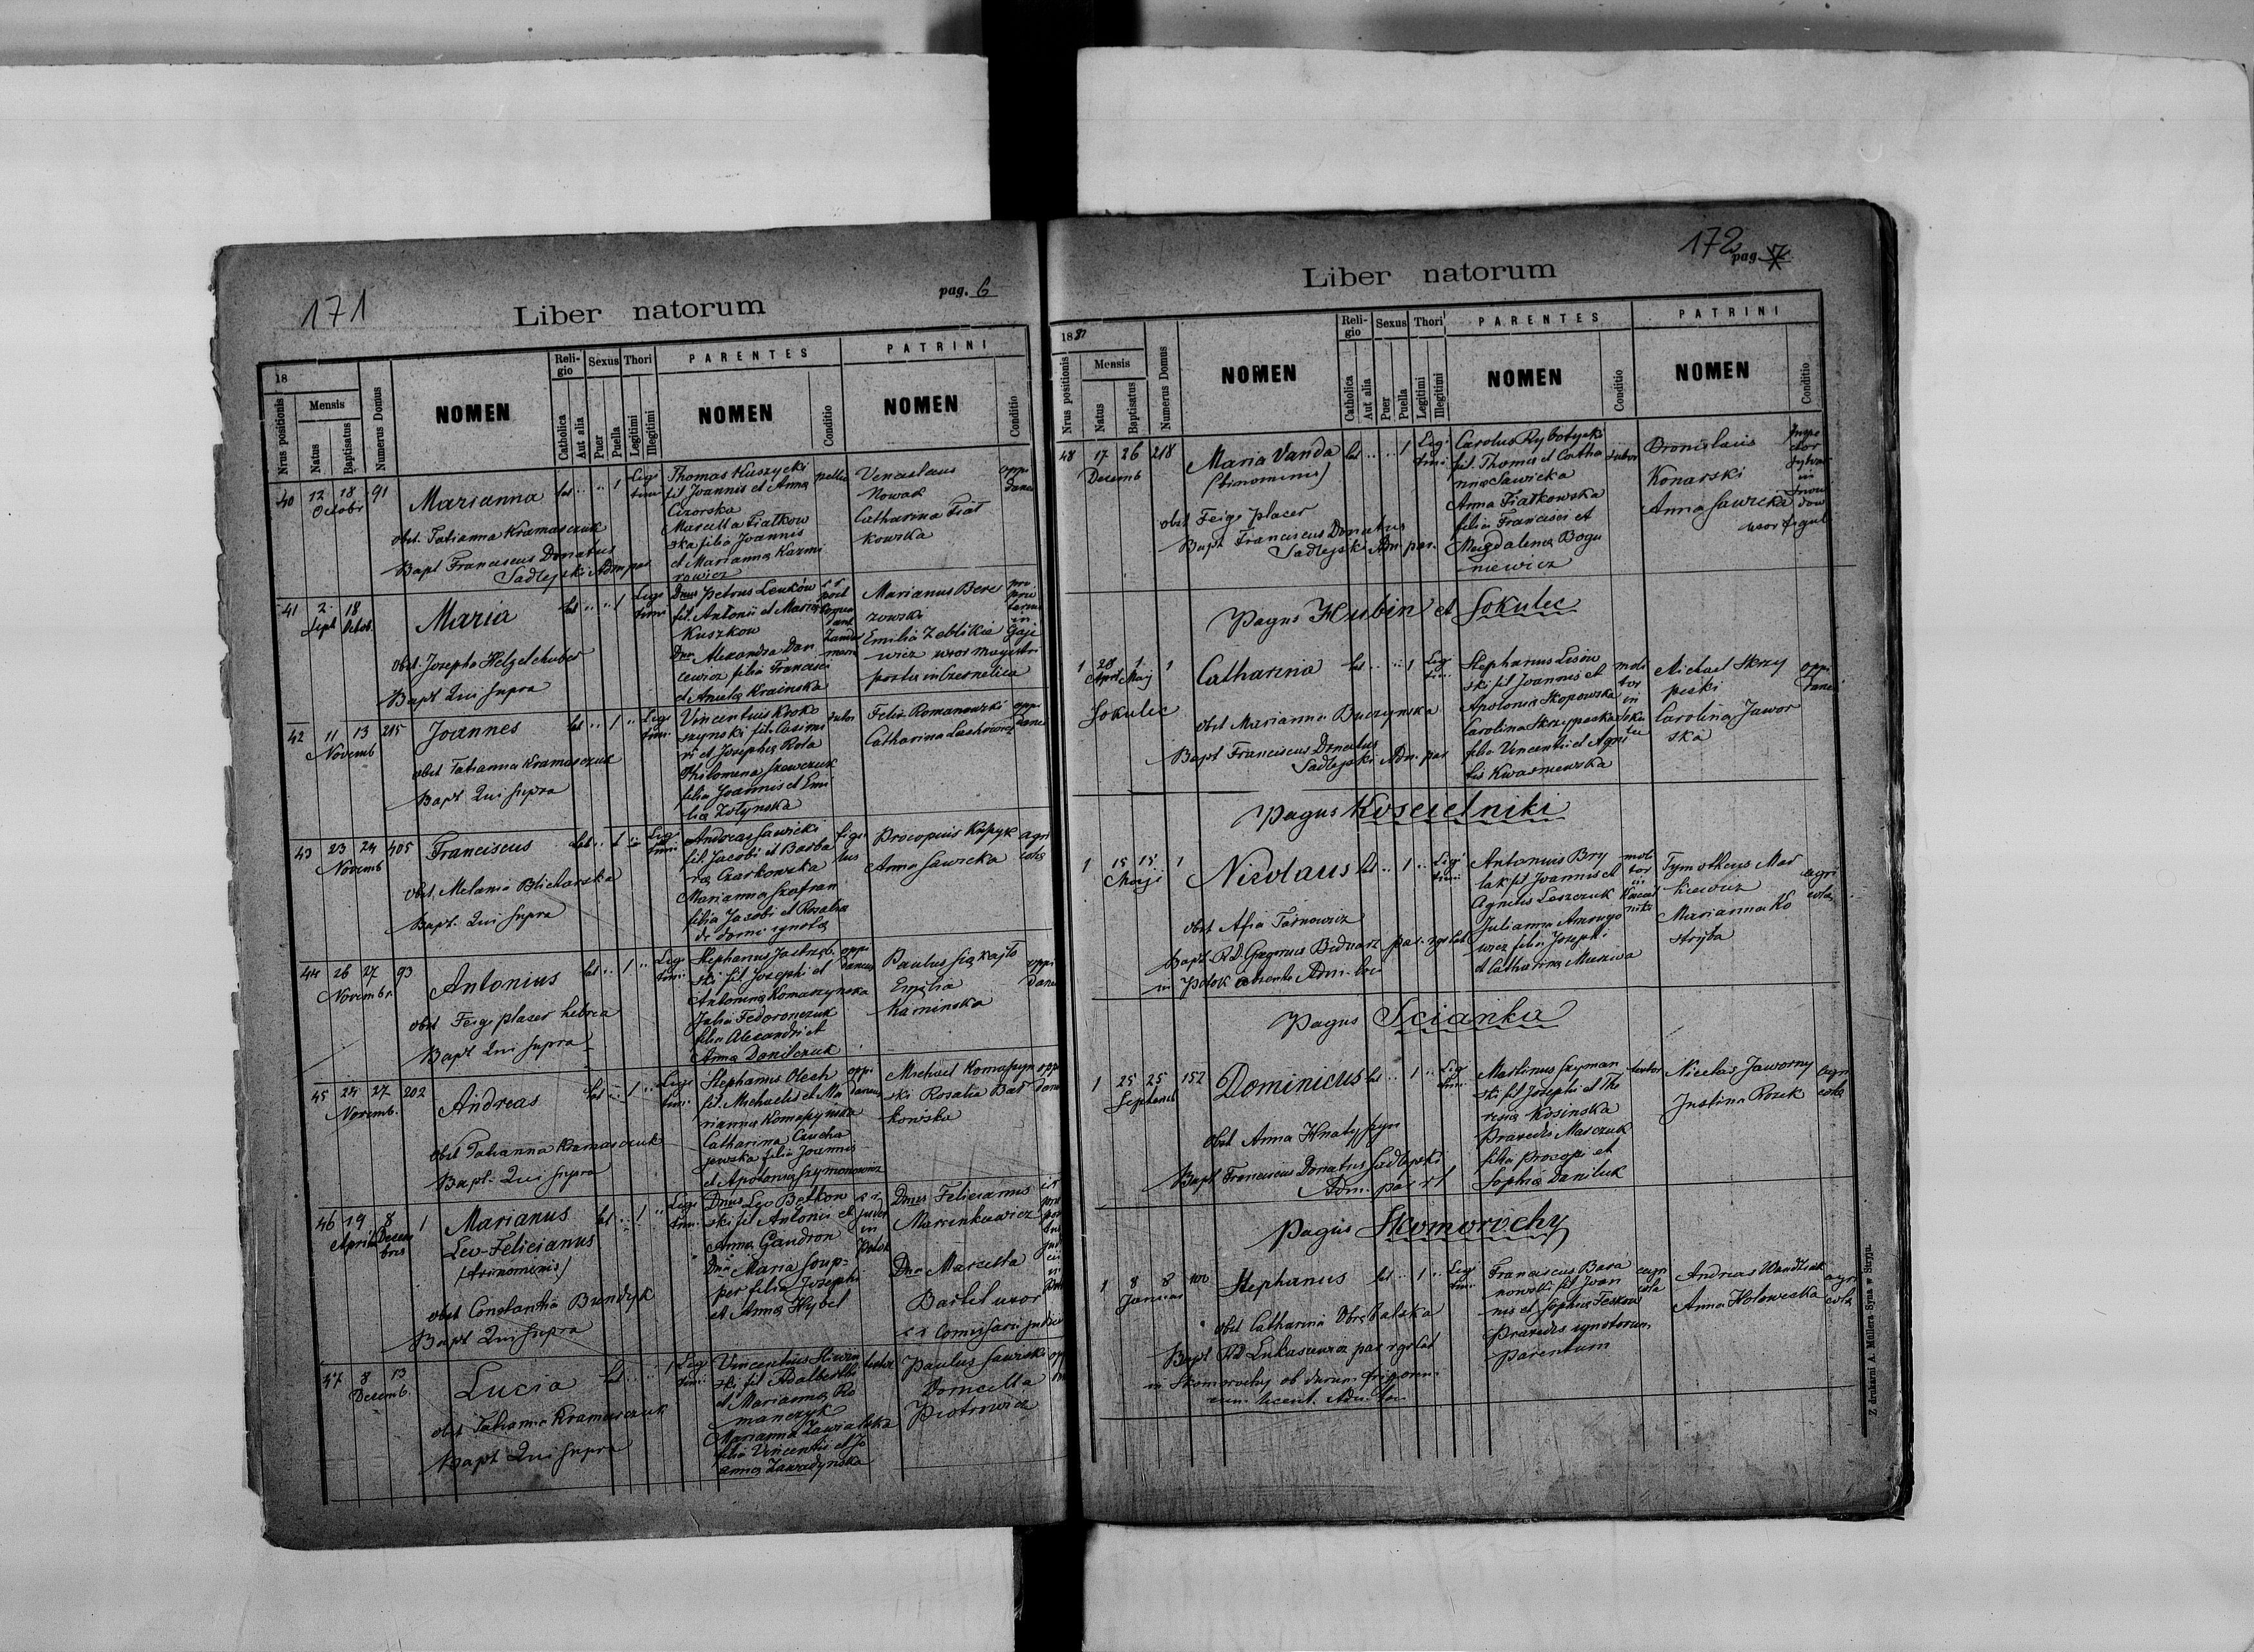 171
Liber natorum
pag. 6
18
Nrus positionis
Mensis
Natus
Baptisatus
Numerus Domus
NOMEN
Religio
Catholica
Aut alia
Sexus
Puer
Puella
Thori
Legitimi
Illegitimi
PARENTES
NOMEN
Conditio
PATRINI
NOMEN
Conditio
40 12 18 91
Octobr
Marianna
obst. Tatianna Kramasczuk
Bapt Franciscus Donatus
Sadlejski Adm par.
lat 1 Legi
timi
Thomas Kuszycki
fil Joannis et Anna
Cizorska
Marcella Fiatkow
ska filia Joannis
et Marianna Kazmi
rowicz
Venceslaus
Nowak
Catharina Fiat
kowska
oppi
danus
41 2 18
Sept Octob.
Maria
Obst. Josepha Helzelchuber
Bapt Qui supra
lat 1 Legi
timi
Dnus Petrus Lenków
fil. Antonii et Maria
Kuszkow
Dna Alexandra Dan
cewicz filia Francisci
et Anula Krainska
Marianus Bere
zowski
Emilia Zeblikie
wicz uxor magistri
postae in Czernelica
42 11 13 215
Novemb
Joannes
obst Tatianna Kramasczuk
Bapt. Qui supra
lat 1 Legi
timi
Vincentius Kroko
szynski fil. Casimi
ri et Josepha Rota
Philomena Szewczuk
filia Joannis et Emi
lia Zotynska
sutor
Felix Romanowski
Catharina Lachowicz
oppi
danus
43 23 24 405
Novemb
Franciscus
Obst. Melania Blicharska
Bapt. Qui supra
lat 1 Legi
timi
Andreas Sawicki
fil. Jacobi et Barba
ra Czarkowska
Marianna Szafran
filia Jacobi et Rosalia
de domo ignota
figu
lus
Procopius Kupyk
Anna Sawicka
agri
cola
44 26 27 93
Novembr.
Antonius
obst Feige placer hebrea
Bapt Qui supra
lat 1 Legi
timi
Stephanus Jastrzęb
ski fil Josephi et
Antonina Komaszynska
Julia Fedoronczuk
filia Alexandri et
Anna Danilczuk
oppi
danus
Paulus
Emilia
Kaminska
oppi
danus
45 24 27 202
Novemb.
Andreas
Obst Tatianna Kramasczuk
Bapt. Qui supra
lat 1 Legi
timi
Stephanus Olech
fil. Michaelis et Ma
rianna Komaszynska
Catharina Czucha
jewska filia Joannis
et Apolonia Szymonowicz
oppi
danus
Michael Komaszyn
ski Rosalia Bał
kowska
oppi
danus
46 19 8 1
Aprilis Decem
bris
Marianus
Leo-Felicianus
/trinomenis/
obst Constantia Bundyk
Bapt Qui supra
lat 1 Legi
timi
Dnus Leo Bętkow
ski fil Antonii et
Anna Gaudron
Dna Maria Soup-
per filia Josephi
et Anna Hybel
Dnus Felicianus
Marinkiewicz
Dna Marcella
Bartel uxor
c r Comissarii judicii
47 8 13
Decemb.
Lucia
obst Tatianna Kramasczuk
Bapt Qui supra
lat 1 Legi
timi
Vincentius Sliwin
ski fil Adalberti
et Marianna Ro
manczyk
Marianna Zawialska
filia Vincentii et Jo
anna Zawadynska
Paulus Sawicki
Domicella
Piotrowicz
172
pag 7
Liber natorum
1881
Nrus positionis
Mensis
Natus
Baptisatus
Numerus Domus
NOMEN
Religio
Catholica
Aut alia
Sexus
Puer
Puella
Thori
Legitimi
Illegitimi
PARENTES
NOMEN
Conditio
PATRINI
NOMEN
Conditio
48 17 26 218
Decemb
Maria Vanda
(binominis)
obst Feige Placer
Bapt Franciscus Donatus
Sadlejski Adm par.
lat 1 Legi
timi
Carolus Rybotycki
fil. Thomae et Catha
rina Sawicka
Anna Fiatkowska
filia Francisci et
Magdalena Bogu
niewicz
sutor
Bronislaus
Konarski
Anna Sawicka
uxor figuli
Pagus Hubin et Sokulec
1 28 1 1
April Maj
Sokulec
Catharina
obst Marianna Buczynska
Bapt Franciscus Donatus
Sadlejski Adm. par
lat 1 Legi
tim.
Stephanus Lisow
ski fil Joannis et
Apolonia Skopowska
Carolina Skrzypecka
filia Vincentii et Agne
tis Kwasniewska
moli
tor
in
Michael Skrzy
pecki
Carolina Jawor
ska
oppi
danei
Pagus Koscielniki
1 15 15 1
Maji
Nicolaus
obst Afia Tarnowicz
Bapt. R.D. Gregorius Bednarz par. r gr cat
in Potok absente Adm. loci
lat 1 Legi
timi
Antonius Bry
lak fil Joannis et
Agnetis Leszczuk
Julianna Amrogo
wicz filia Josephi
et Catharina Murawa
moli
tor
in
Tymotheus Mar
kiewicz
Marianna Ko
stryba
agri
cola
Pagus Scianka
1 25 25 152
Septemb
Dominicus
Obst Anna Hnatyszyn
Bapt. Franciscus Donatus Sadlejski
Adm. par r l
lat 1 Legi
timi
Martinus Szyman
ski fil Josephi et The
resia Kosinska
Praxedis Marczuk
filia Procopi et
Sophia Daniluk
textor
Nicolas Jaworny
Justina Rozek
agri
cola
Pagus Skomorochy
1 8 8 100
Januar
Stephanus
obst Catharina
Bapt RD Lukasiewicz par r gr cat
in Skomorochy ob durum frigorem
cum licent. Adm loci
lat 1 Legi
timi
Franciscus Bara
nowski fil Joan
nis et Sophia Feskow
Praxedis ignotorum
parentum
agri
cola
Andreas Wandtiuk
Anna Holowecka
agri
cola
Z drukarni A. Müllera Syna w Stryju.